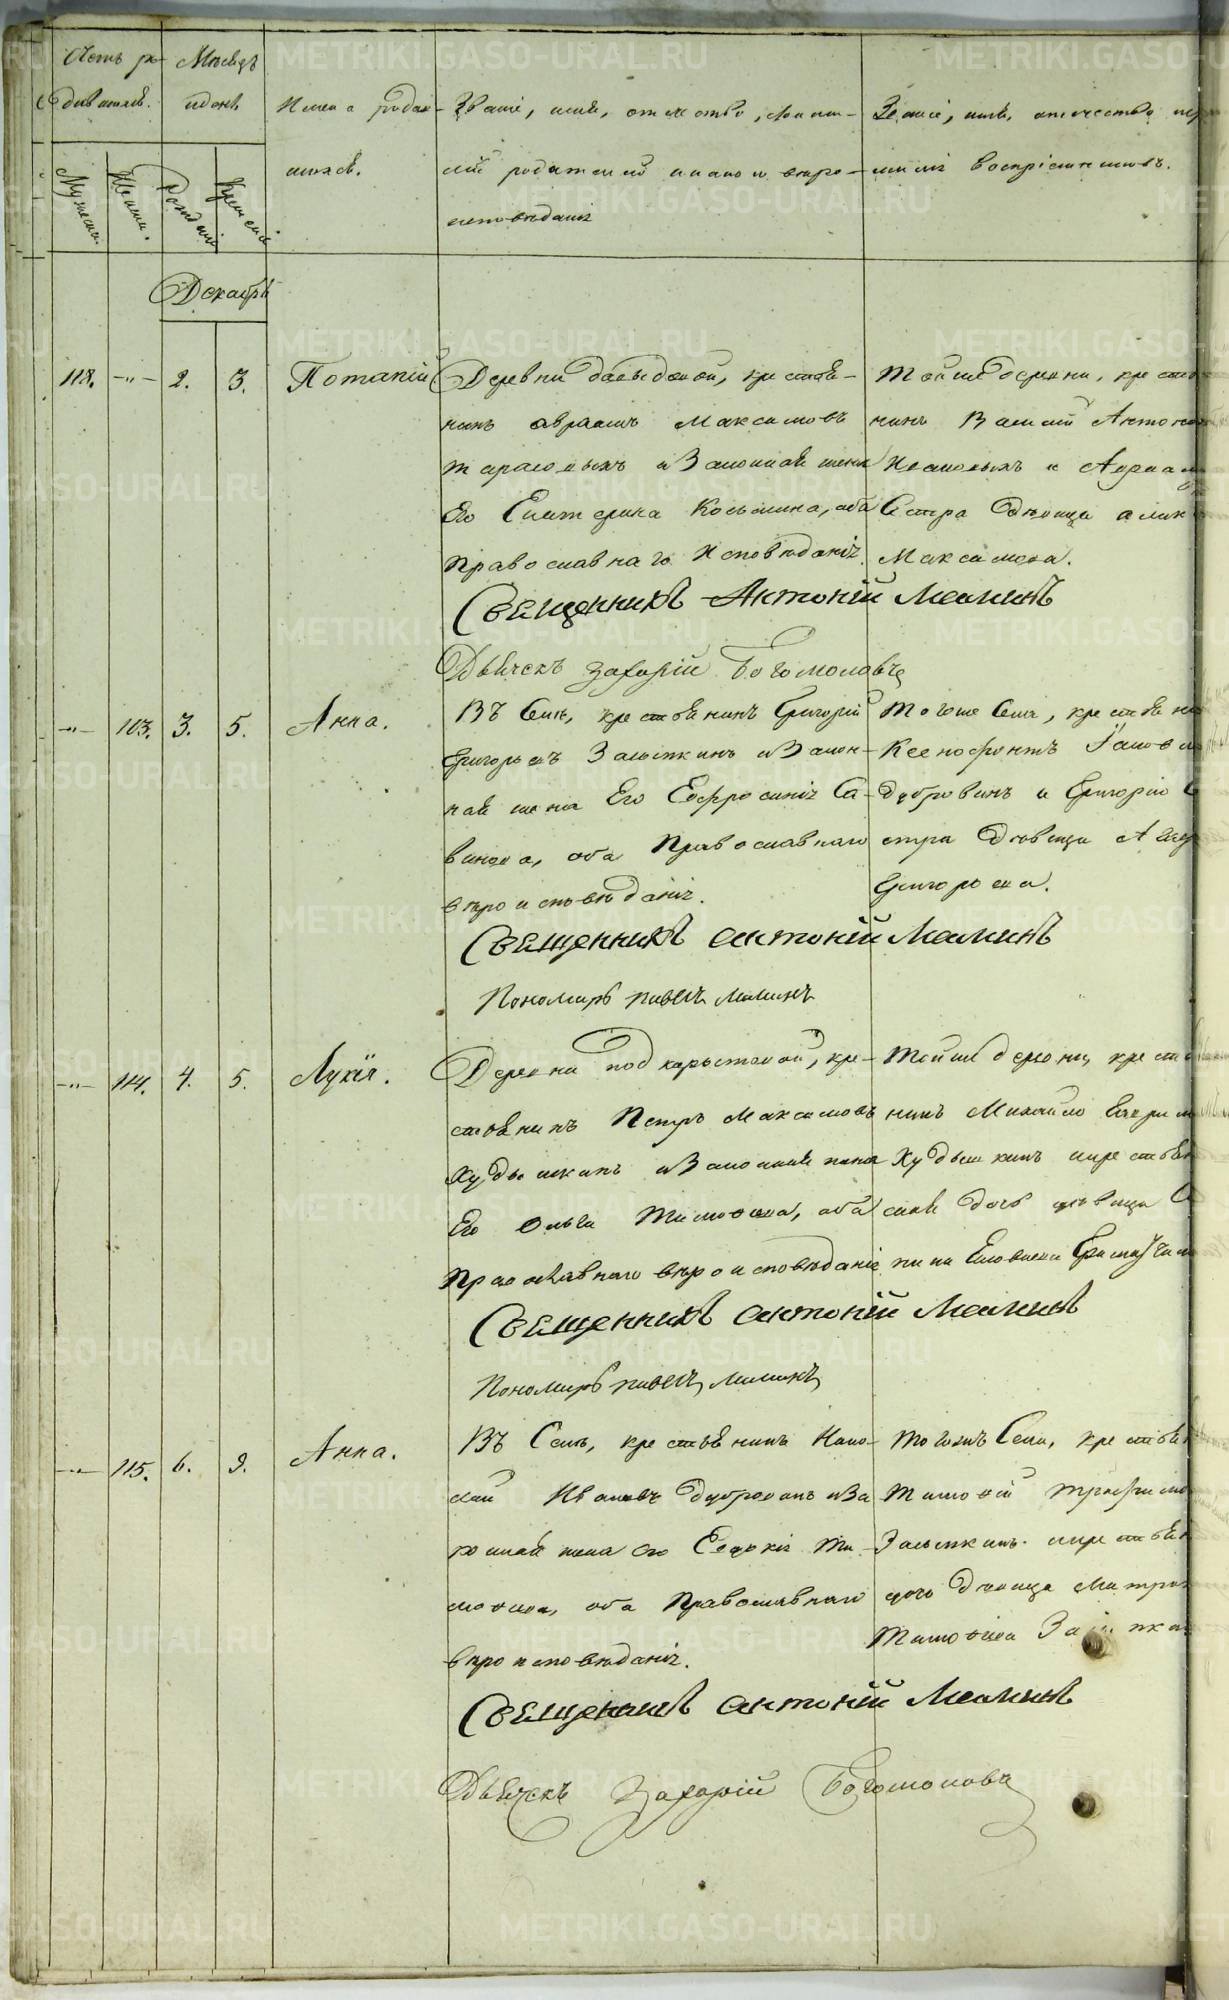 Счетъ ро-
дившихся.
Мѣсяцъ
и день
Имена родив-
шихся.
Званіе, имя, отчество, фами-
лія родителей и какого вѣро-
исповѣданія
Званіе, имя, отчество
воспріемниковъ.
Мужеска.
Женска.
Рожденія
Крещенія
Декабрь
118. -"- 2. 3. Потапій
Деревни Давыдовой, крестья-
нинъ Авраамъ Максимовъ
и Законная жена
Его Екатерина Козьмина, оба
Православнаго Исповѣданія.
Тойже деревни, кресть
нинъ Антонов
сестра Дѣвица
Максимова.
Священникъ Антоній Маминъ
Дьячекъ Захарій Богомоловъ
-"- 113. 3. 5. Анна.
Въ Селѣ, крестьянинъ Григорій
Григорьевъ Залыткинъ и Закон-
ная жена Его Евфросинія Са-
винова, оба Православнаго
вѣроисповѣданія.
Тогоже Села, крестьянин
Ксенофонтъ
Дубровинъ и Григорія
стра Дѣвица
Григорьева.
Священникъ Антоній Маминъ
Пономарь Павелъ Маминъ
-"- 114. 4. 5. Лукія.
Деревни Подкорытовой, кре-
стьянинъ Петръ Максимовъ
Худышкинъ и Законная жена
Его Ольга Тимофеева, оба
Православнаго вѣроисповѣданія
Тойже деревни, кресть
нинъ Михайло
Худышкинъ и крестьян
ская дочь дѣвица
Священникъ Антоній Маминъ
Пономарь Павелъ Маминъ
-"- 115. 6. 9. Анна.
Въ Селѣ, крестьянинъ Нико-
лай Ивановъ Дубровинъ и За
конная жена его Евдокія Ти-
мофеева, оба Православнаго
вѣроисповѣданія.
Тогожъ Села, крестьян
Тимофей
Залыткинъ и крестьян
дочь Дѣвица Матрон
Тимофеева
Священникъ Антоній Маминъ
Дьячекъ Захарій Богомоловъ
METRIKI.GASO-URAL.RU